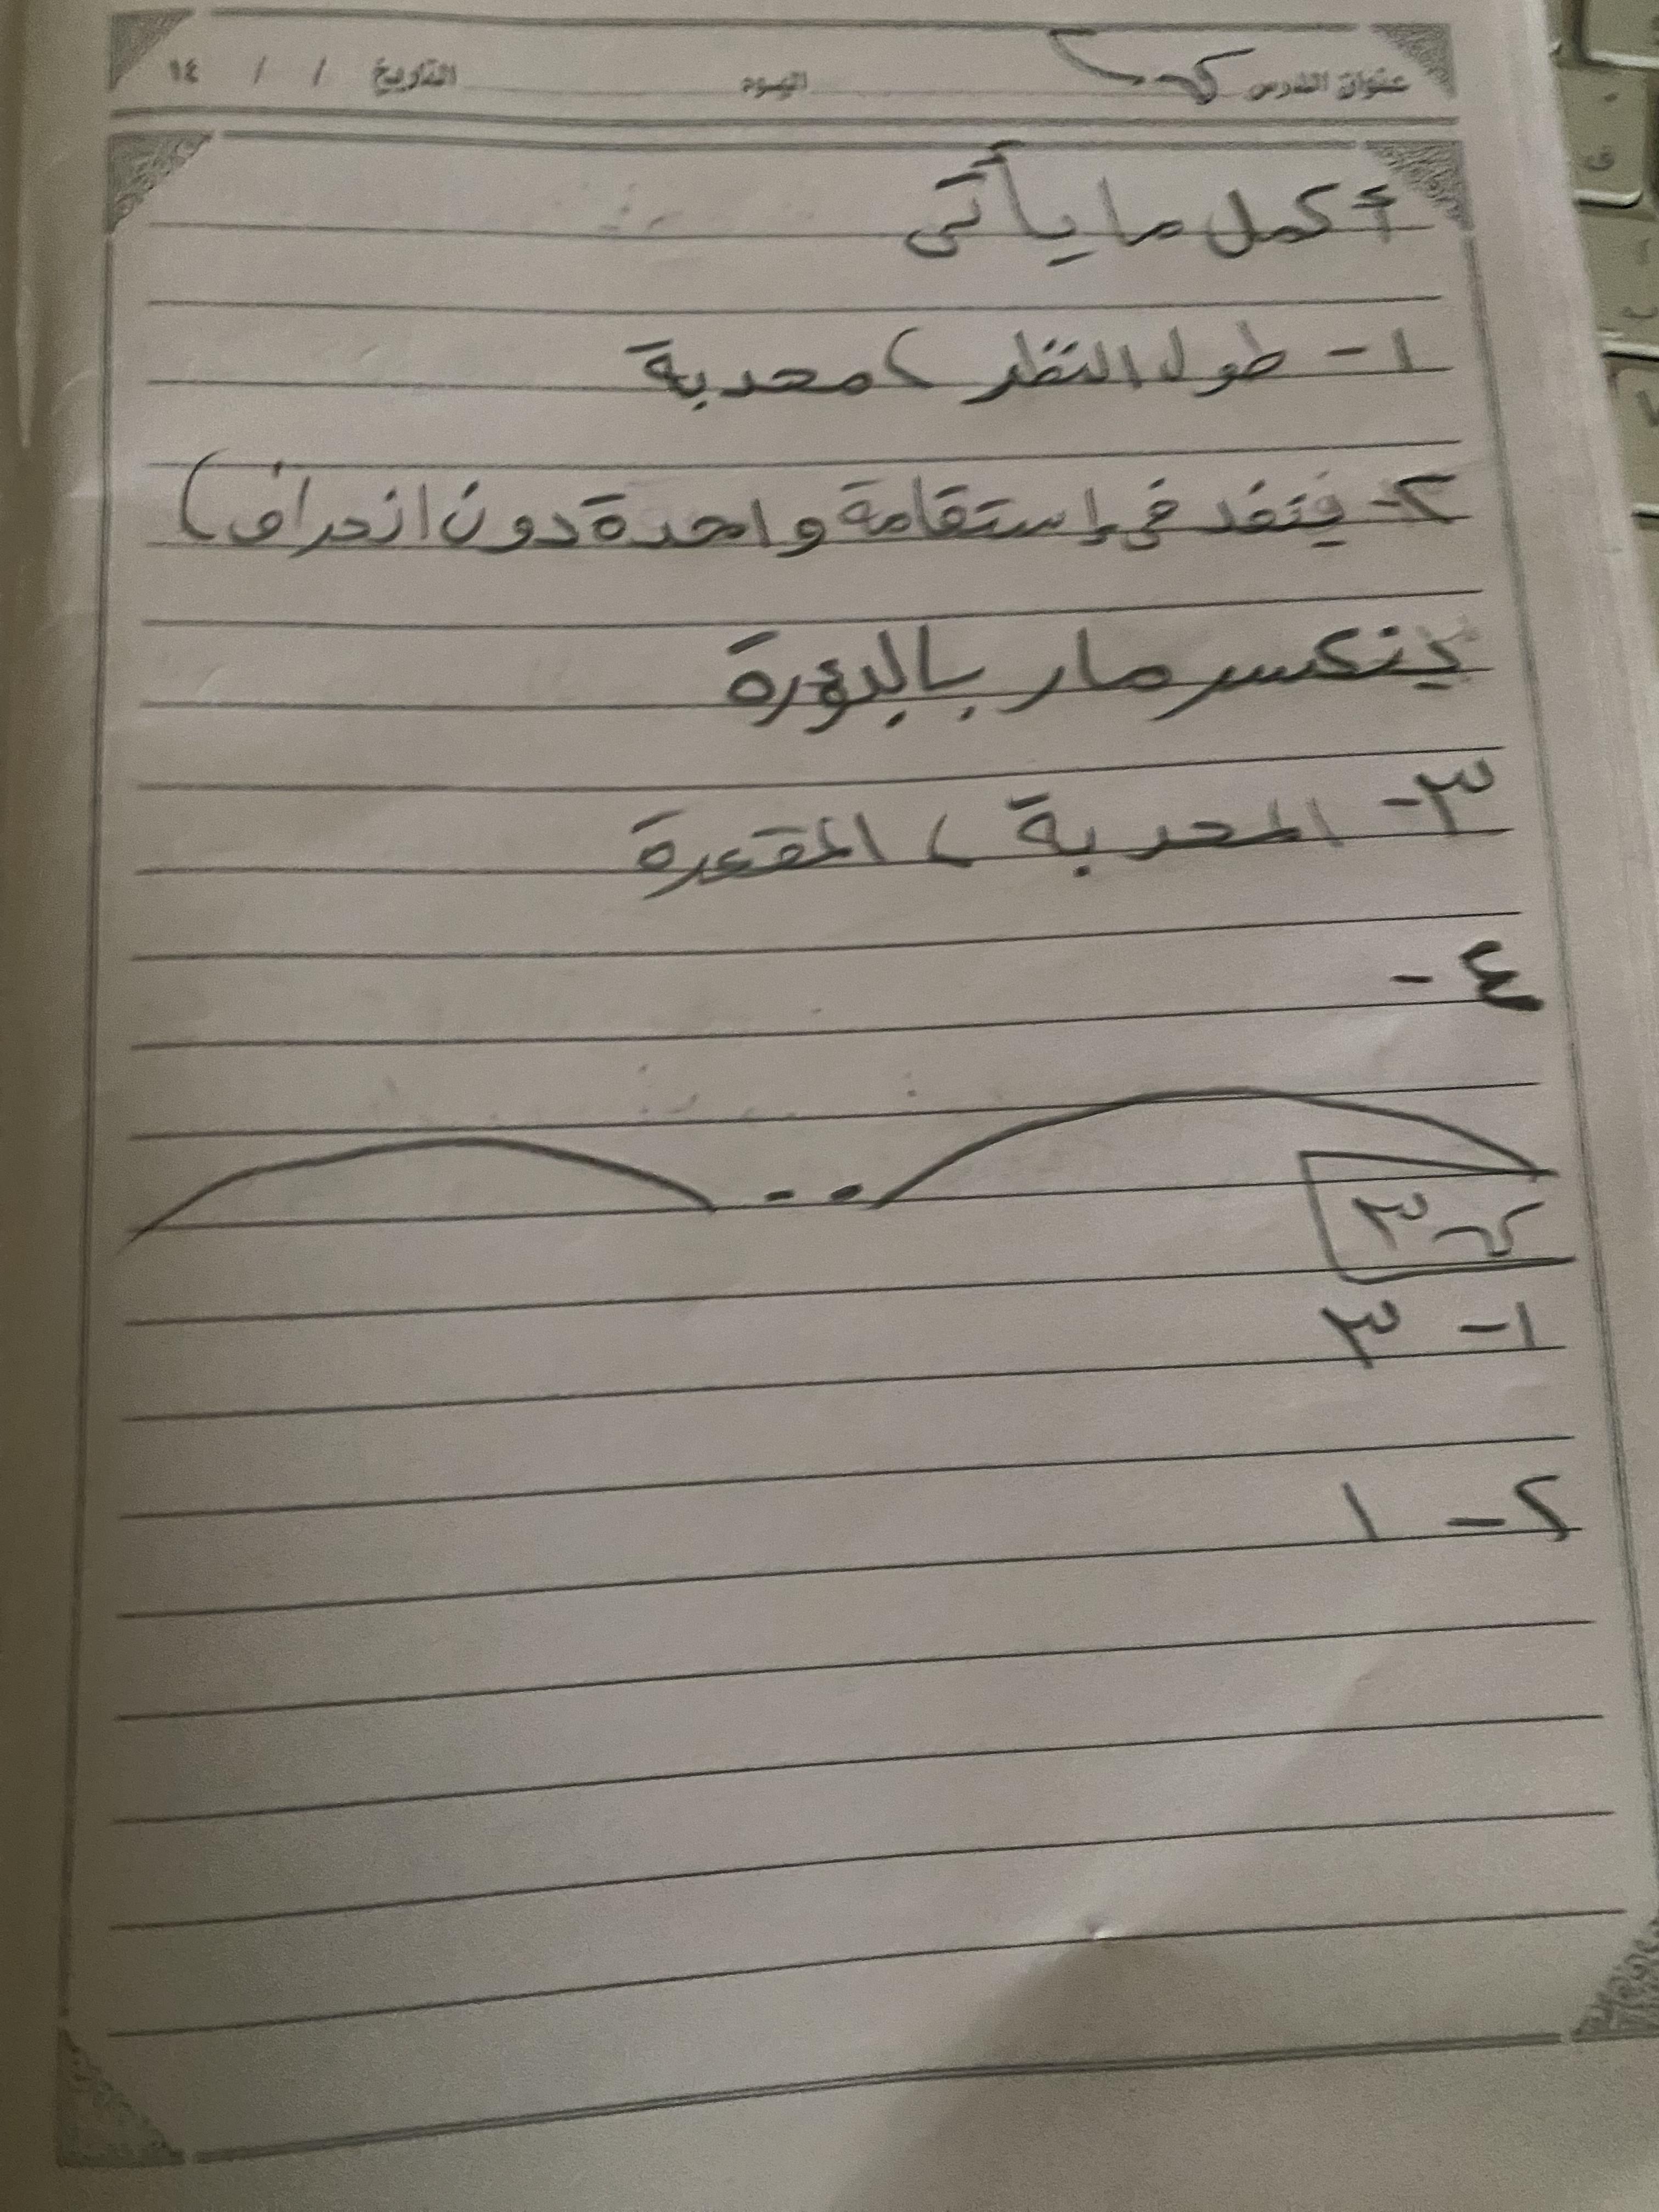 عنوان الدرس
اليوم
التاريخ / / ١٤
أكمل ما يأتى
١- طول النظر، محدبة
٢- فينفد في إستقامة واحدة دون انحراف)
ينكسر مار بالبؤرة
٣- المحدبة، المقعرة
٤-
٣
١- ٣
٢- ١